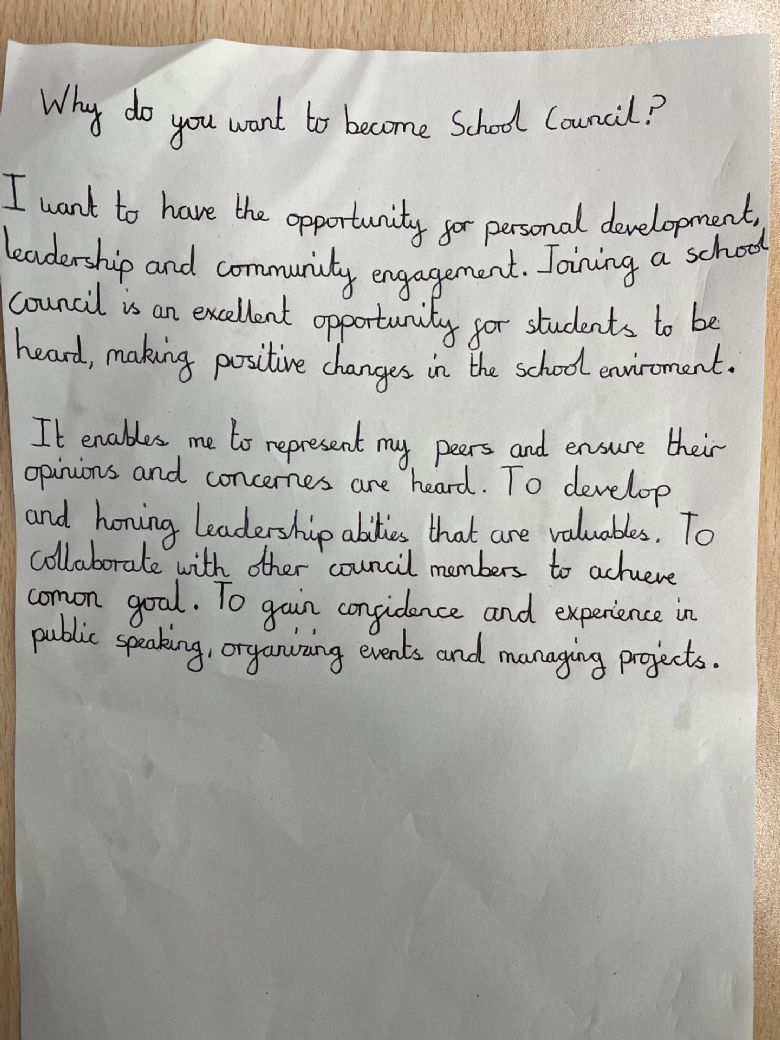 Why do you want to become School Council?
I want to have the opportunity for personal development,
leadership and community engagement. Joining a school
council is an excellent opportunity for students to be
heard, making positive changes in the school enviroment.
It enables me to represent my peers and ensure their
opinions and concernes are heard. To develop
and honing leadership abities that are valuables. To
collaborate with other council members to achieve
comon goal. To gain confidence and experience in
public speaking, organizing events and managing projects.